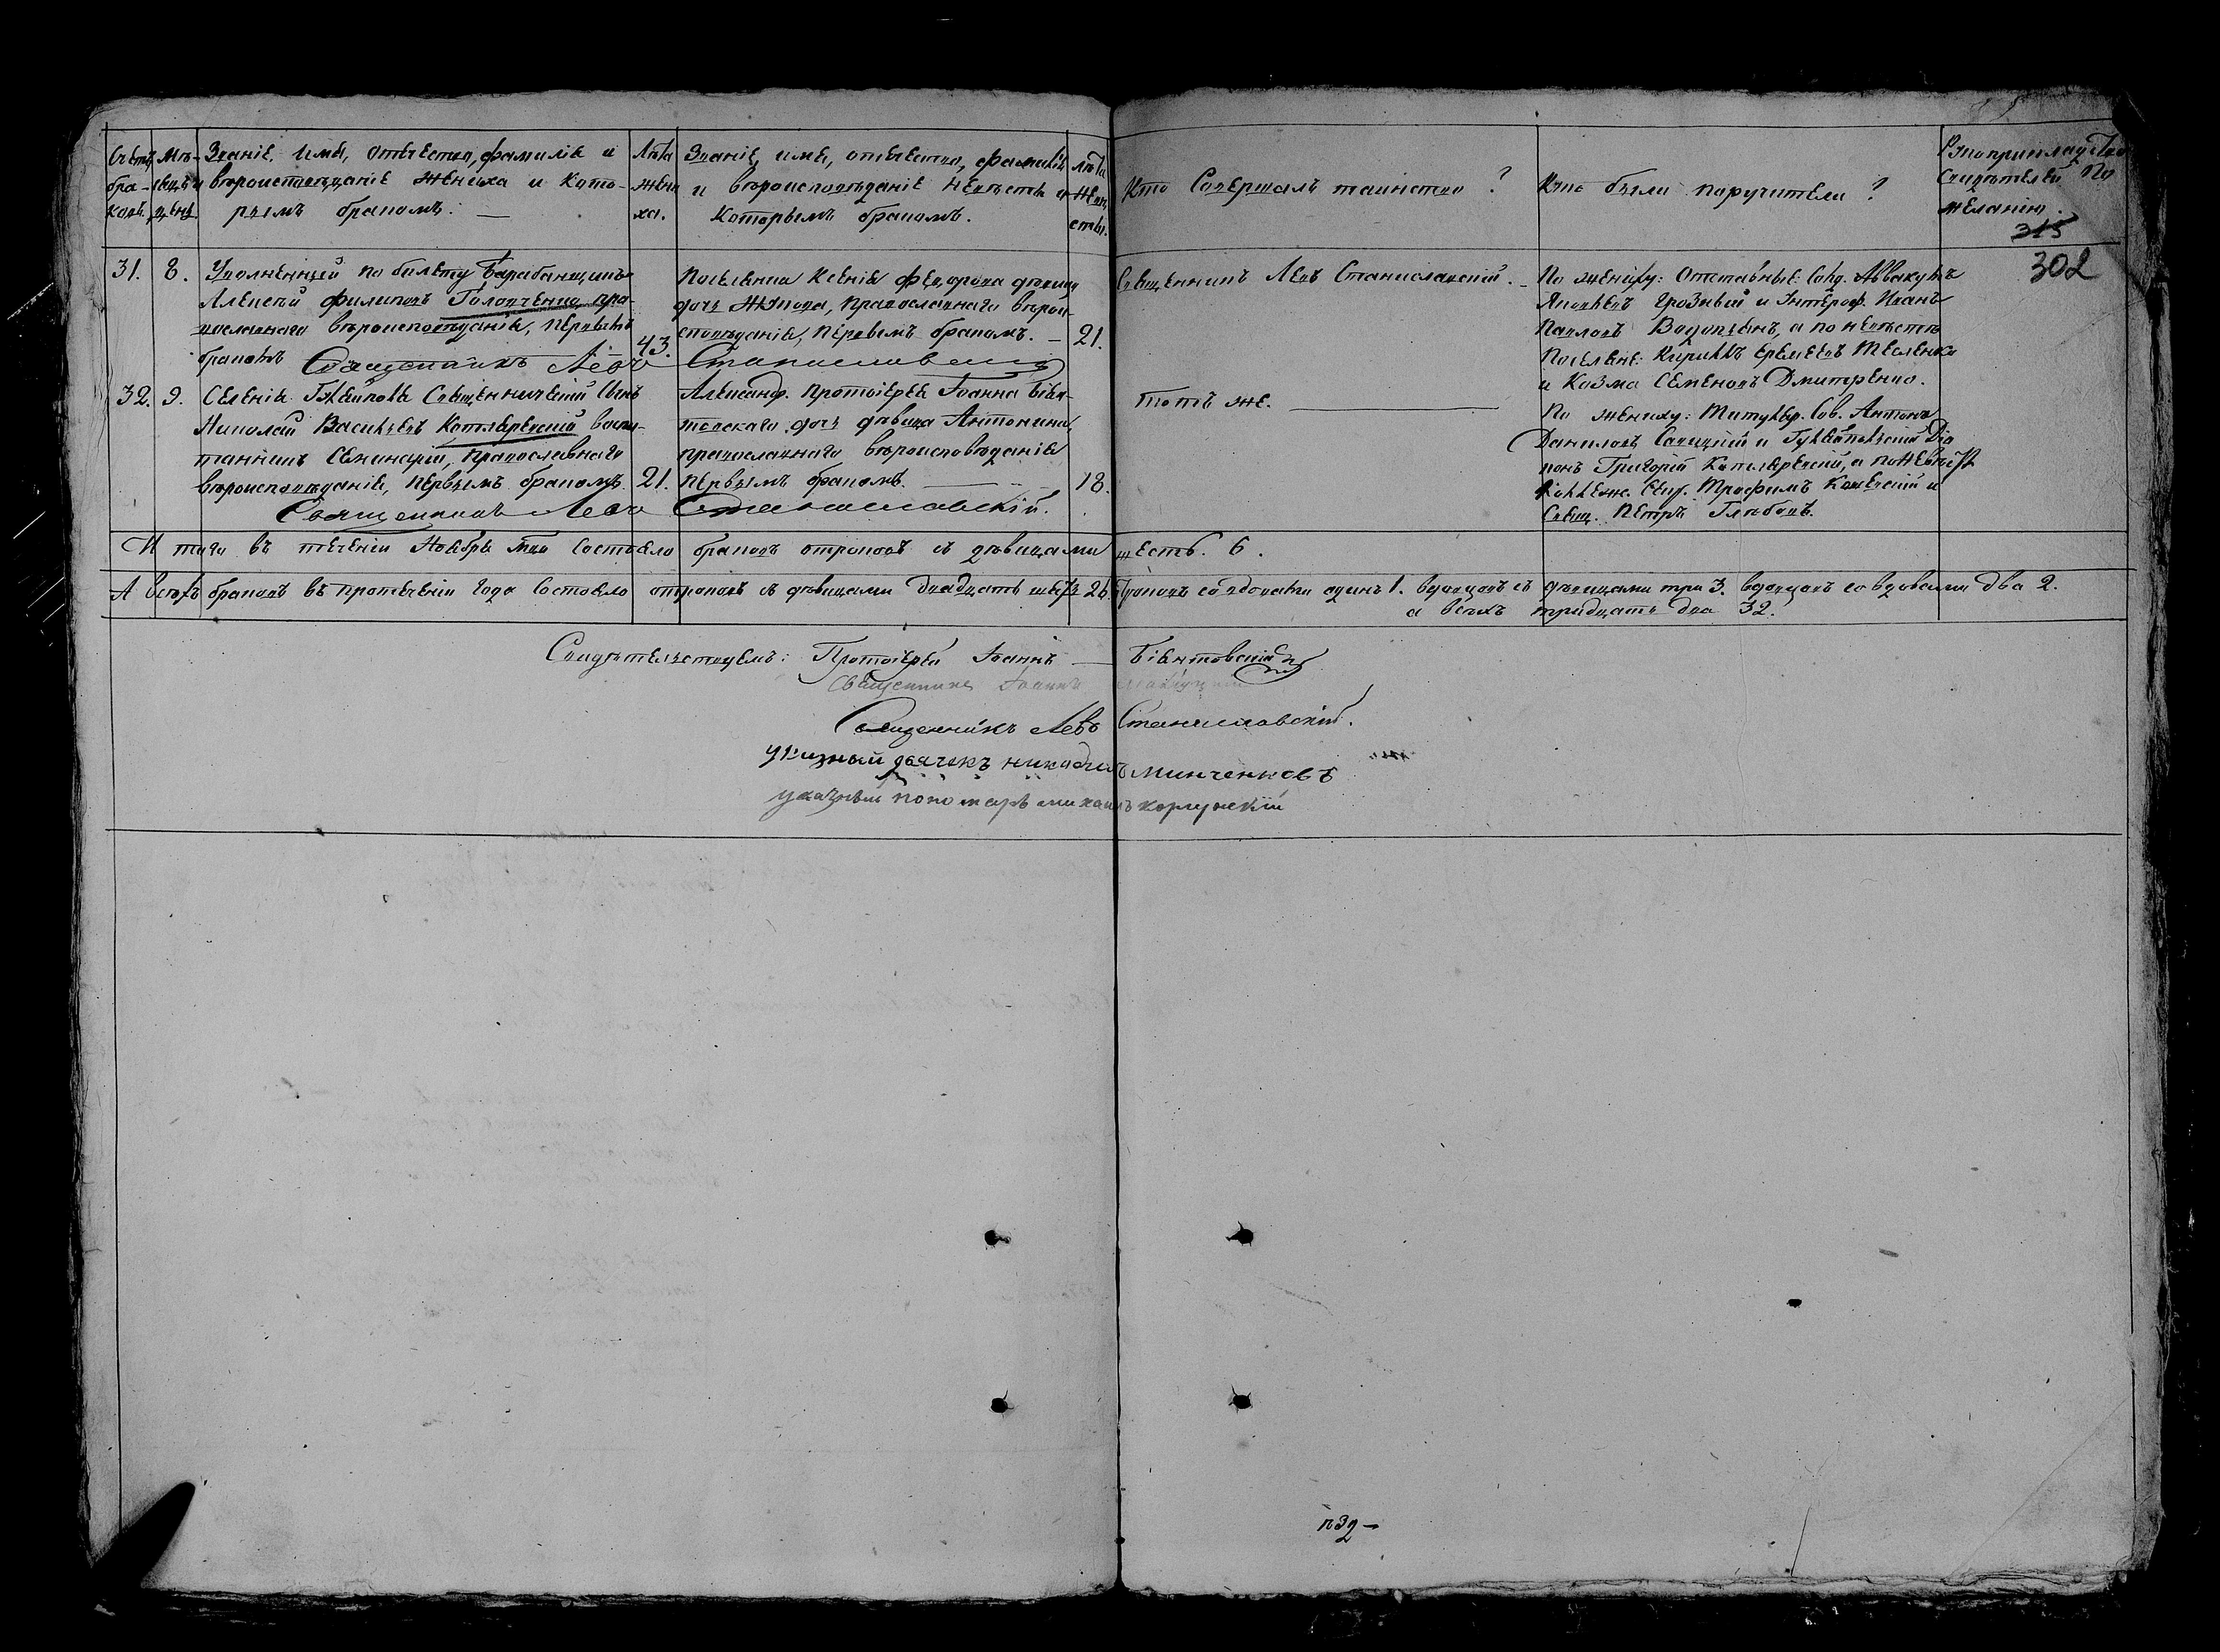 Счетъ бра- ковъ.
Мѣ- сяцъ и день
Званіе, имя, отечество, фамилія и
вѣроисповѣданіе жениха и кото-
рымъ бракомъ. —
Лѣта
жени
ха.
Званіе, имя, отечество, фамилія
и вѣроисповѣданіе невѣсты и
которымъ бракомъ.
Лѣта
невѣ
сты.
Кто Совершалъ таинство ?
Кто были поручители ?
Рукоприкладство
Свидѣтелей По
желанію.
315
302
31. 8.
Уволненный по билету Барабанщикъ
Алексѣй Филиповъ Головченко, пра-
вославнаго вѣроисповѣданія, первымъ
бракомъ
43.
Поселянка Ксенія Федорова дѣвица
дочь Жукова, православнаго вѣрои-
сповѣданія, первымъ бракомъ. —
21.
Священникъ Левъ Станиславскій
Священникъ Левъ Станиславскій. —
По жениху: Отставные: Солд. Аввакумъ
Яковлевъ Грозный и Унтероф. Иванъ
Павловъ Водопьянъ, а по невѣстѣ
Поселяне: Кирилъ Еремеевъ Тесленко
и Козма Семеновъ Дмитренко.
32. 9.
Селенія Священническій Сынъ
Николай Васильевъ Котляревскій воспи-
танникъ Семинаріи, Православнаго
вѣроисповѣданія, первымъ бракомъ
21.
Александр. Протоіерея Іоанна Біян-
товскаго дочь дѣвица Антонина,
православнаго вѣроисповѣданія
первымъ бракомъ. —
18.
Священникъ Левъ Станиславскій.
тотъ же. —
По жениху: Титуляр. Сов. Антонъ
Даниловъ Савицкій и Діа
конъ Григорій Котляревскій, а по невѣстѣ
Коллеж. Секр. Трофимъ и
Свящ. Петръ Глѣбовъ.
И того въ теченіи Ноября мца состояло браковъ отроковъ съ дѣвицами шесть. 6.
А всѣхъ браковъ въ протеченіи года состояло отроковъ съ дѣвицами двадцать шесть 26. Отроковъ со вдовами одинъ 1. вдовцовъ съ дѣвицами три 3. вдовцовъ со вдовами два 2.
а всѣхъ тридцать два 32.
Свидѣтельствуемъ: Протоіерей Іоаннъ — Біянтовскій
Священникъ Іоаннъ
Священникъ Левъ Станиславскій.
указный дьячекъ Минченковъ
указный пономарь михаилъ